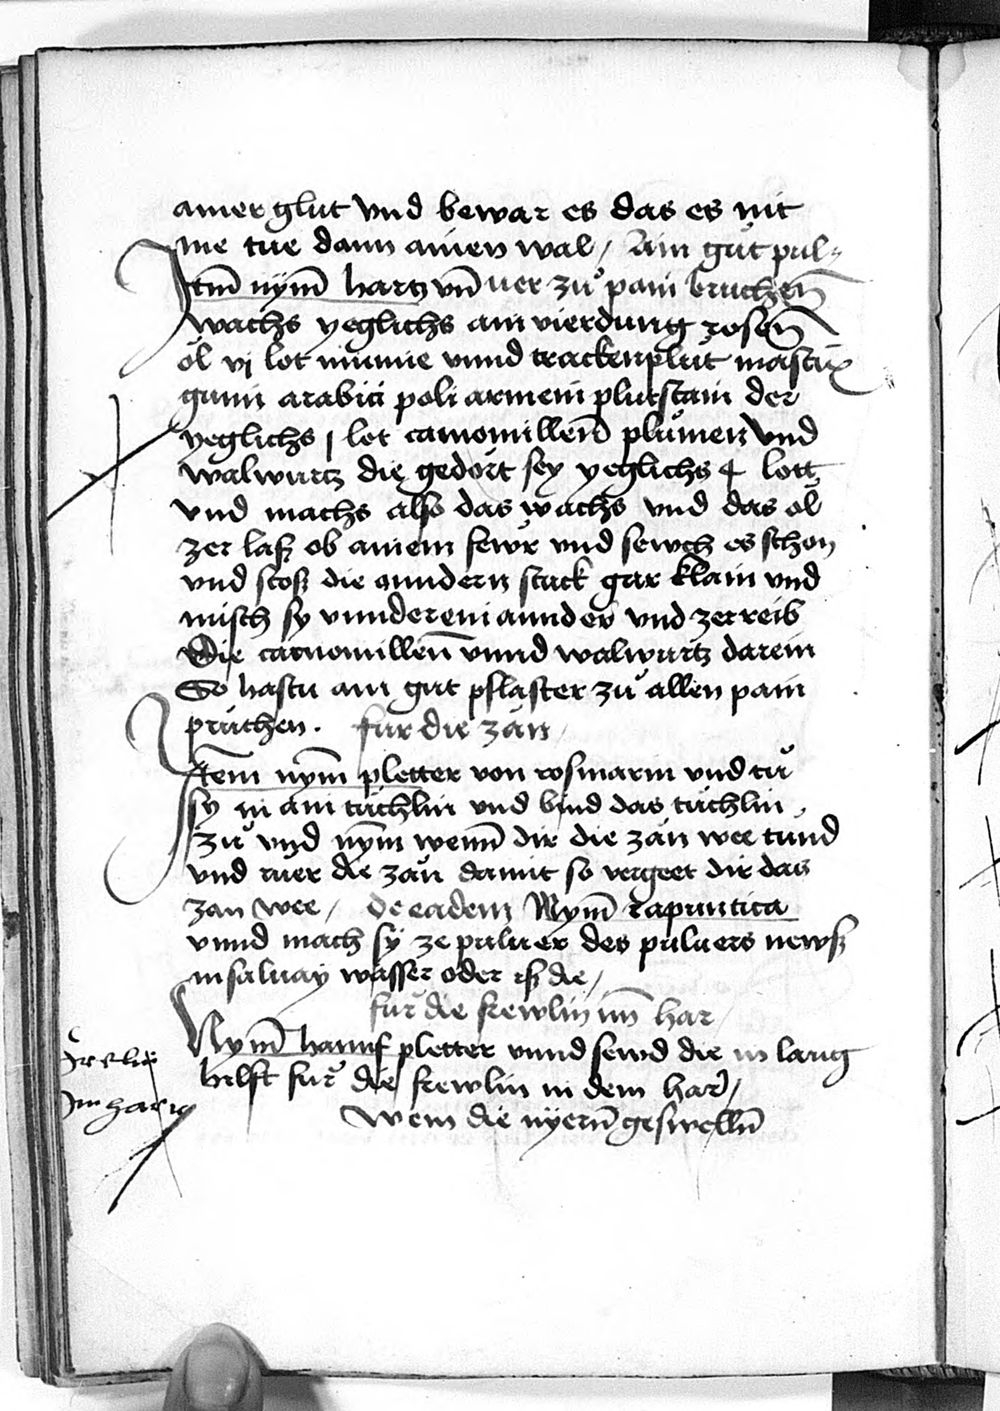 ainer glut vnd bewar es das es nit
me tue dann ainen wal / Ain gůt pul=
Itm̄ nym̄ hartz vn̄ uer zů pain bruchen̄
wachs yeglichs ain vierdung rosen̄
öl vj lot mumie vnnd trackenplůt mastix
gumi arabici poli armeni plutstain der
yeglichs j lot camomillen̄ plůmen vnd
walwurtz die gedört sey yeglichs 4 lott
vnd machs also das wachs vnd das öl
zer laß ob ainem fewr vnd sewch es schon
vnd stoß die anndern stuck gar klain vnd
misch sy vnnder ein annder vnd zerreib
Die camomillen̄ vnnd walwurtz darein
So hastu ain gut pflaster zů allen pain
prüchen. für die zän /
Item nym̄ pletter von rosmarin vnd tů
sy in ain tüchlin vnd bind das tüchlin
zů vnd nym wenn̄ dir die zän wee tund
vnd rüer die zän damit so vergeet dir das
zan wee / de eadem Nym̄ rapuntica
vnnd mach sy ze puluer des puluers newß
in saluay wasser oder iß die /
für die frewlin im̄ har /
Nym̄ hannf pletter vnnd sewd die in laug
hilft für die frewlin in dem har /
Im har
Wem die nyern̄ geswelln̄